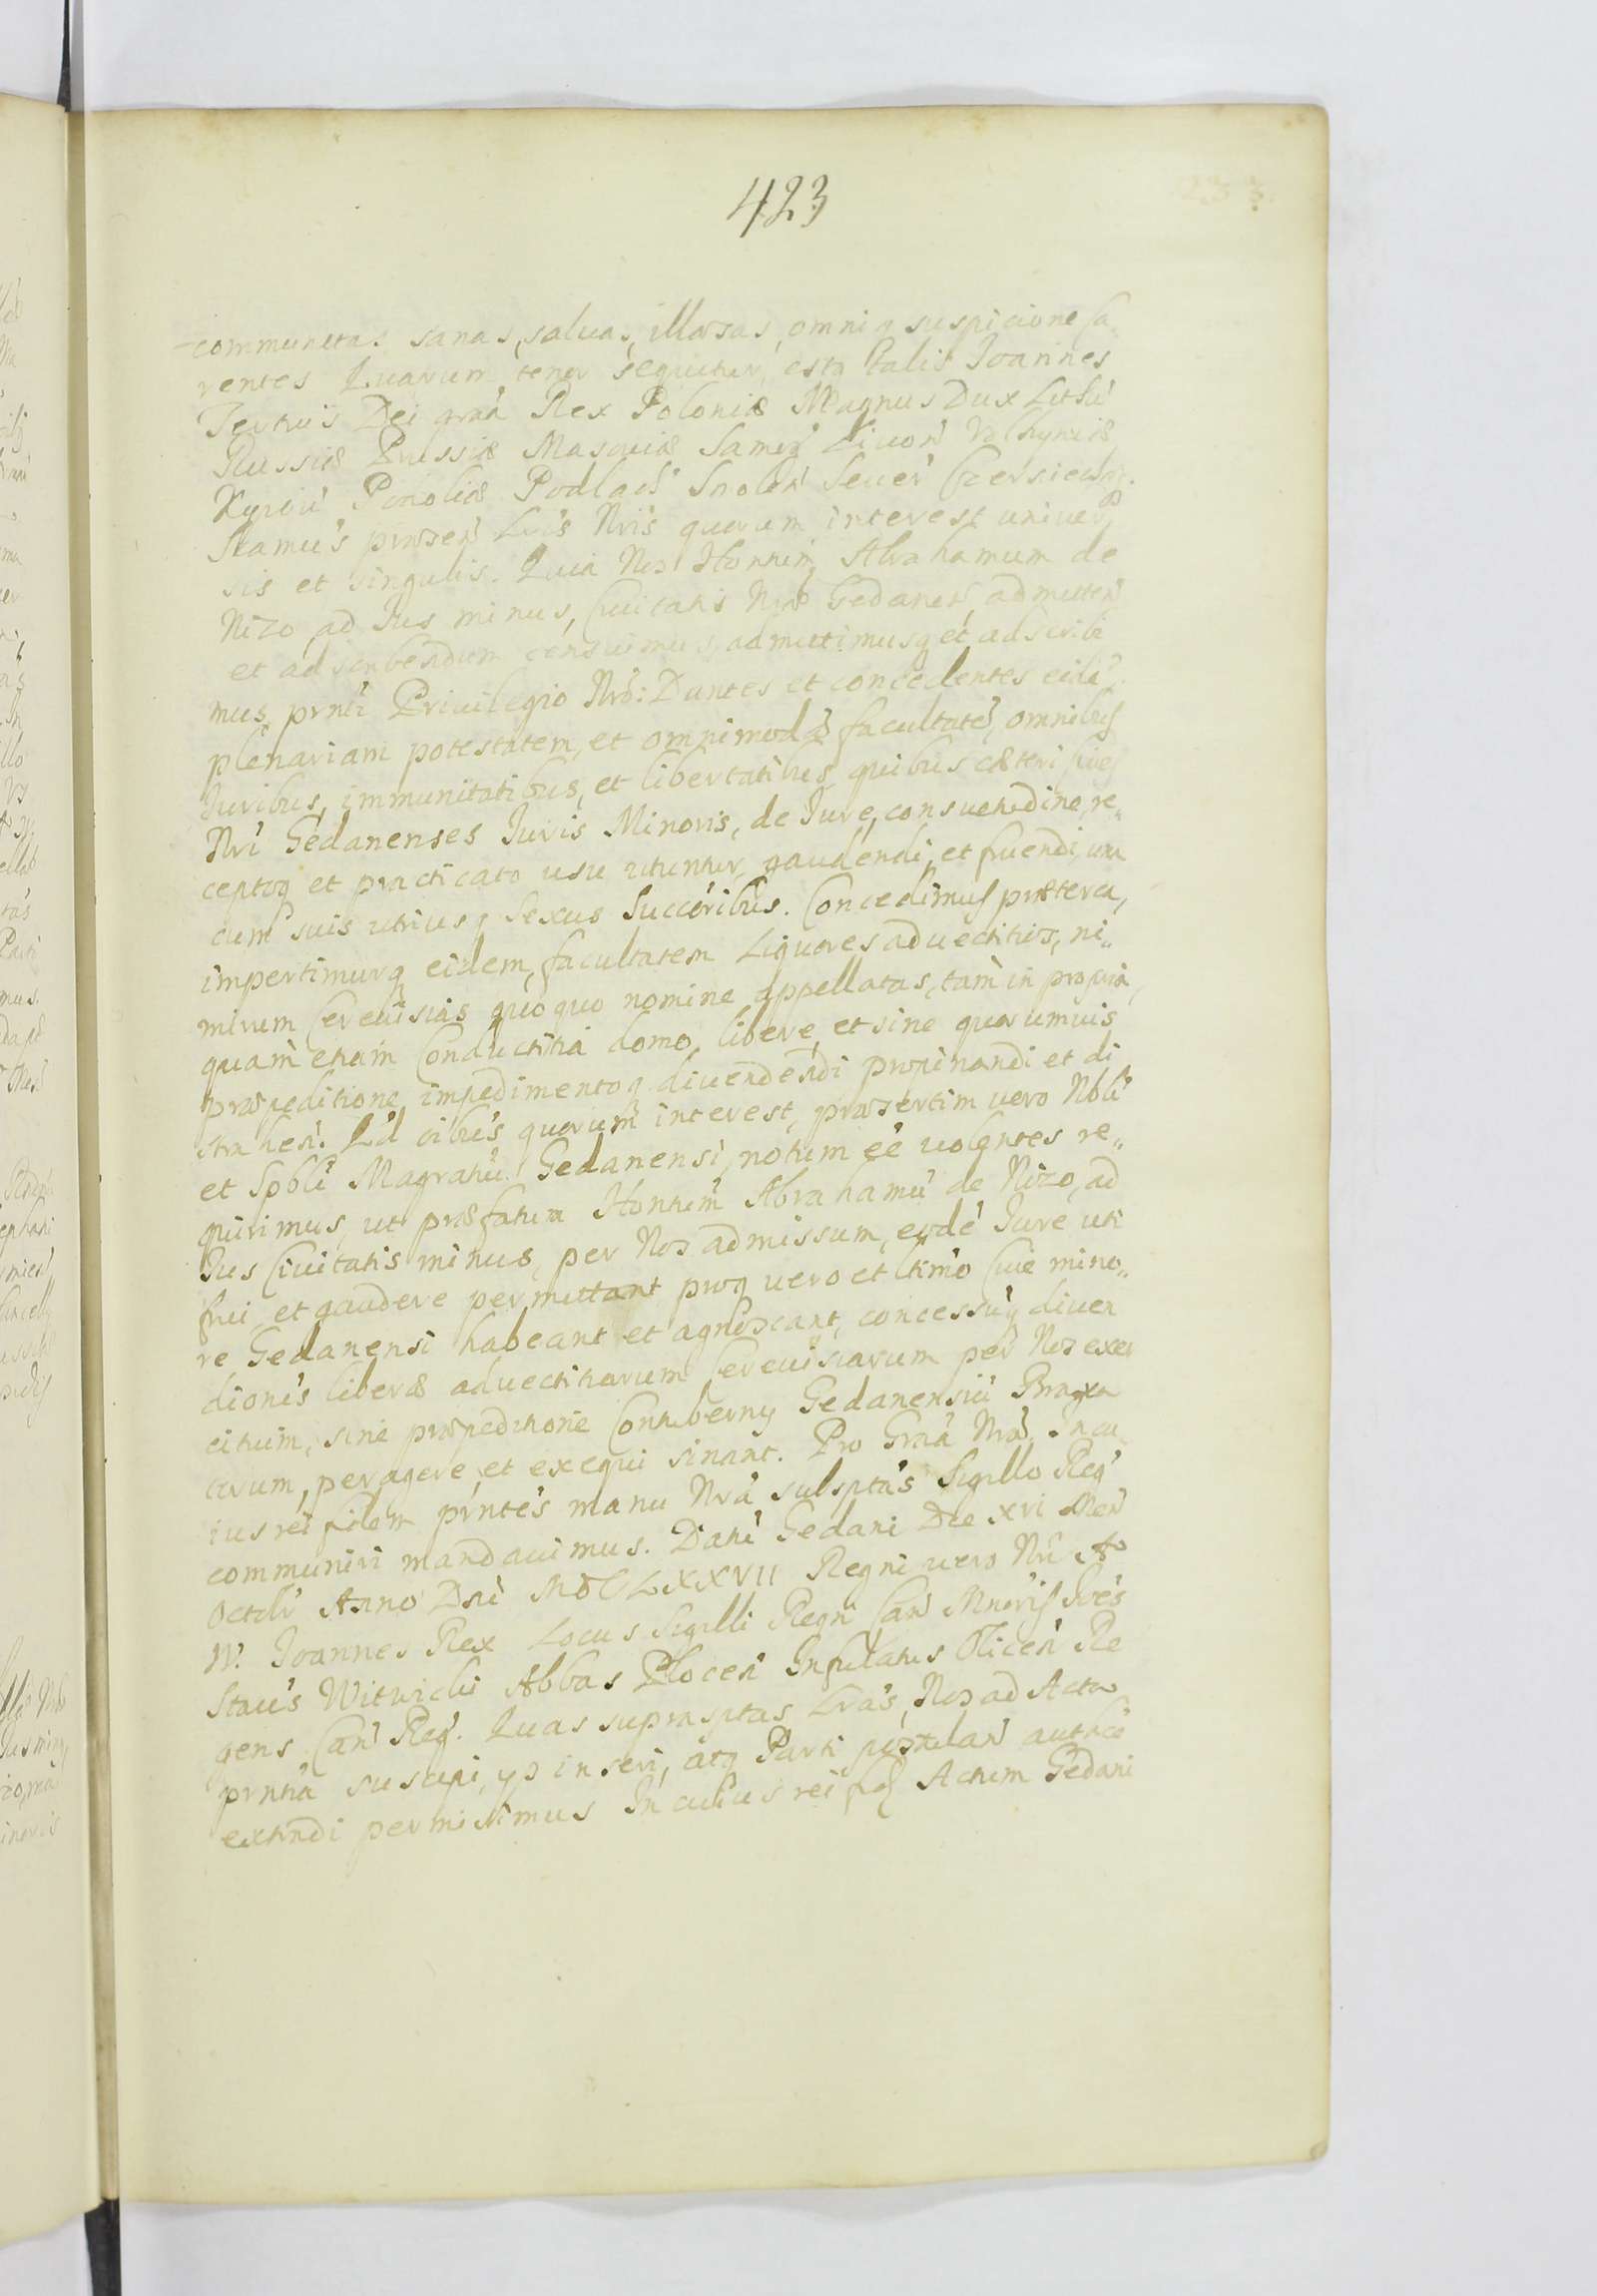 423
communitas sanas, saluas, illæsas, omniq suspicione ca„
rentes Quarum tenor sequitur, estq talis Joannes
Tertius Dei gráa Rex Poloniæ Magnus Dux Lithú
Russiæ Prussiæ Masouiæ Samog Liuoń Volhyniæ
Kyiou Podoliæ Podlach Smoleń Seuer Czerniech.
Stamus præseń Lris Nris quorum interest univer„
sis et singulis. Quia Nos Honnem Abrahamum de
Nizo ad Jus minus, Ciuitatis Nræ Gedaneń, admitteń
et adscribendum censuimus, admittimusq et adscribi
mus pntí Priuilegio Nro: Dantes et concedentes eidé
plenariam potestatem, et omnimodã facultaté, omnibus
Juribus, immunitatibus, et libertatibus, quibus cæteri Ciues
Nri Gedanenses Juris Minoris, de Jure, consuetudine, re„
ceptoq et practicato usu utuntur, gaudendi, et fruendi, una
cum suis utriusq Sexus Succóribus. Concedimus præterea,
impertimurq eidem, facultatem Liquores aduectitios, ni„
mirum Cereuisias quoquo nomine appellatas, tam in propria,
quam etiam Conductitia domo, libere, et sine quorumuis
præpeditione, impedimentoq diuendendi propinandi et di
straheń. Qd oibus quorum interest, præsertim uero Nobli
et Spbli Magratui Gedanensi, notum eé uolentes re„
quirimus, ut præfatum Honnem Abrahamũ de Nizo, ad
Jus Ciuitatis minus, per Nos admissum, eodé Jure uti
frui, et gaudere permittant proq uero et ltimo Ciue mino„
re Gedanensi habeant et agnoscant, concessúq diuen
dionis liberæ aduectitiarum Cereuisiarum per Nos exer
citium, sine præpeditione Contubernÿ Gedanensiũ Braxa
torum, peragere, et exequi sinant. Pro Gráa Nrá. In cu
ius rei fidem pntes manu Nrá subsptás Sigillo Reg
communiri mandauimus. Datú Gedani Die XVI Meń
Octbr Anno Dni MDCLXXVII Regni uero Nri Ao
IV. Joannes Rex Locus Sigilli Regni Cań Mnoris Joés
Staus Witwicki Abbas Ploceń Infulatus Oliceń Re
gens Cań Reg. Quas suprasptas Lras, Nos ad Acta
pntia suscepi, ys inseri, atq Parti postulań authcé
extradi permisimus In cuius rei fid Actum Gedani